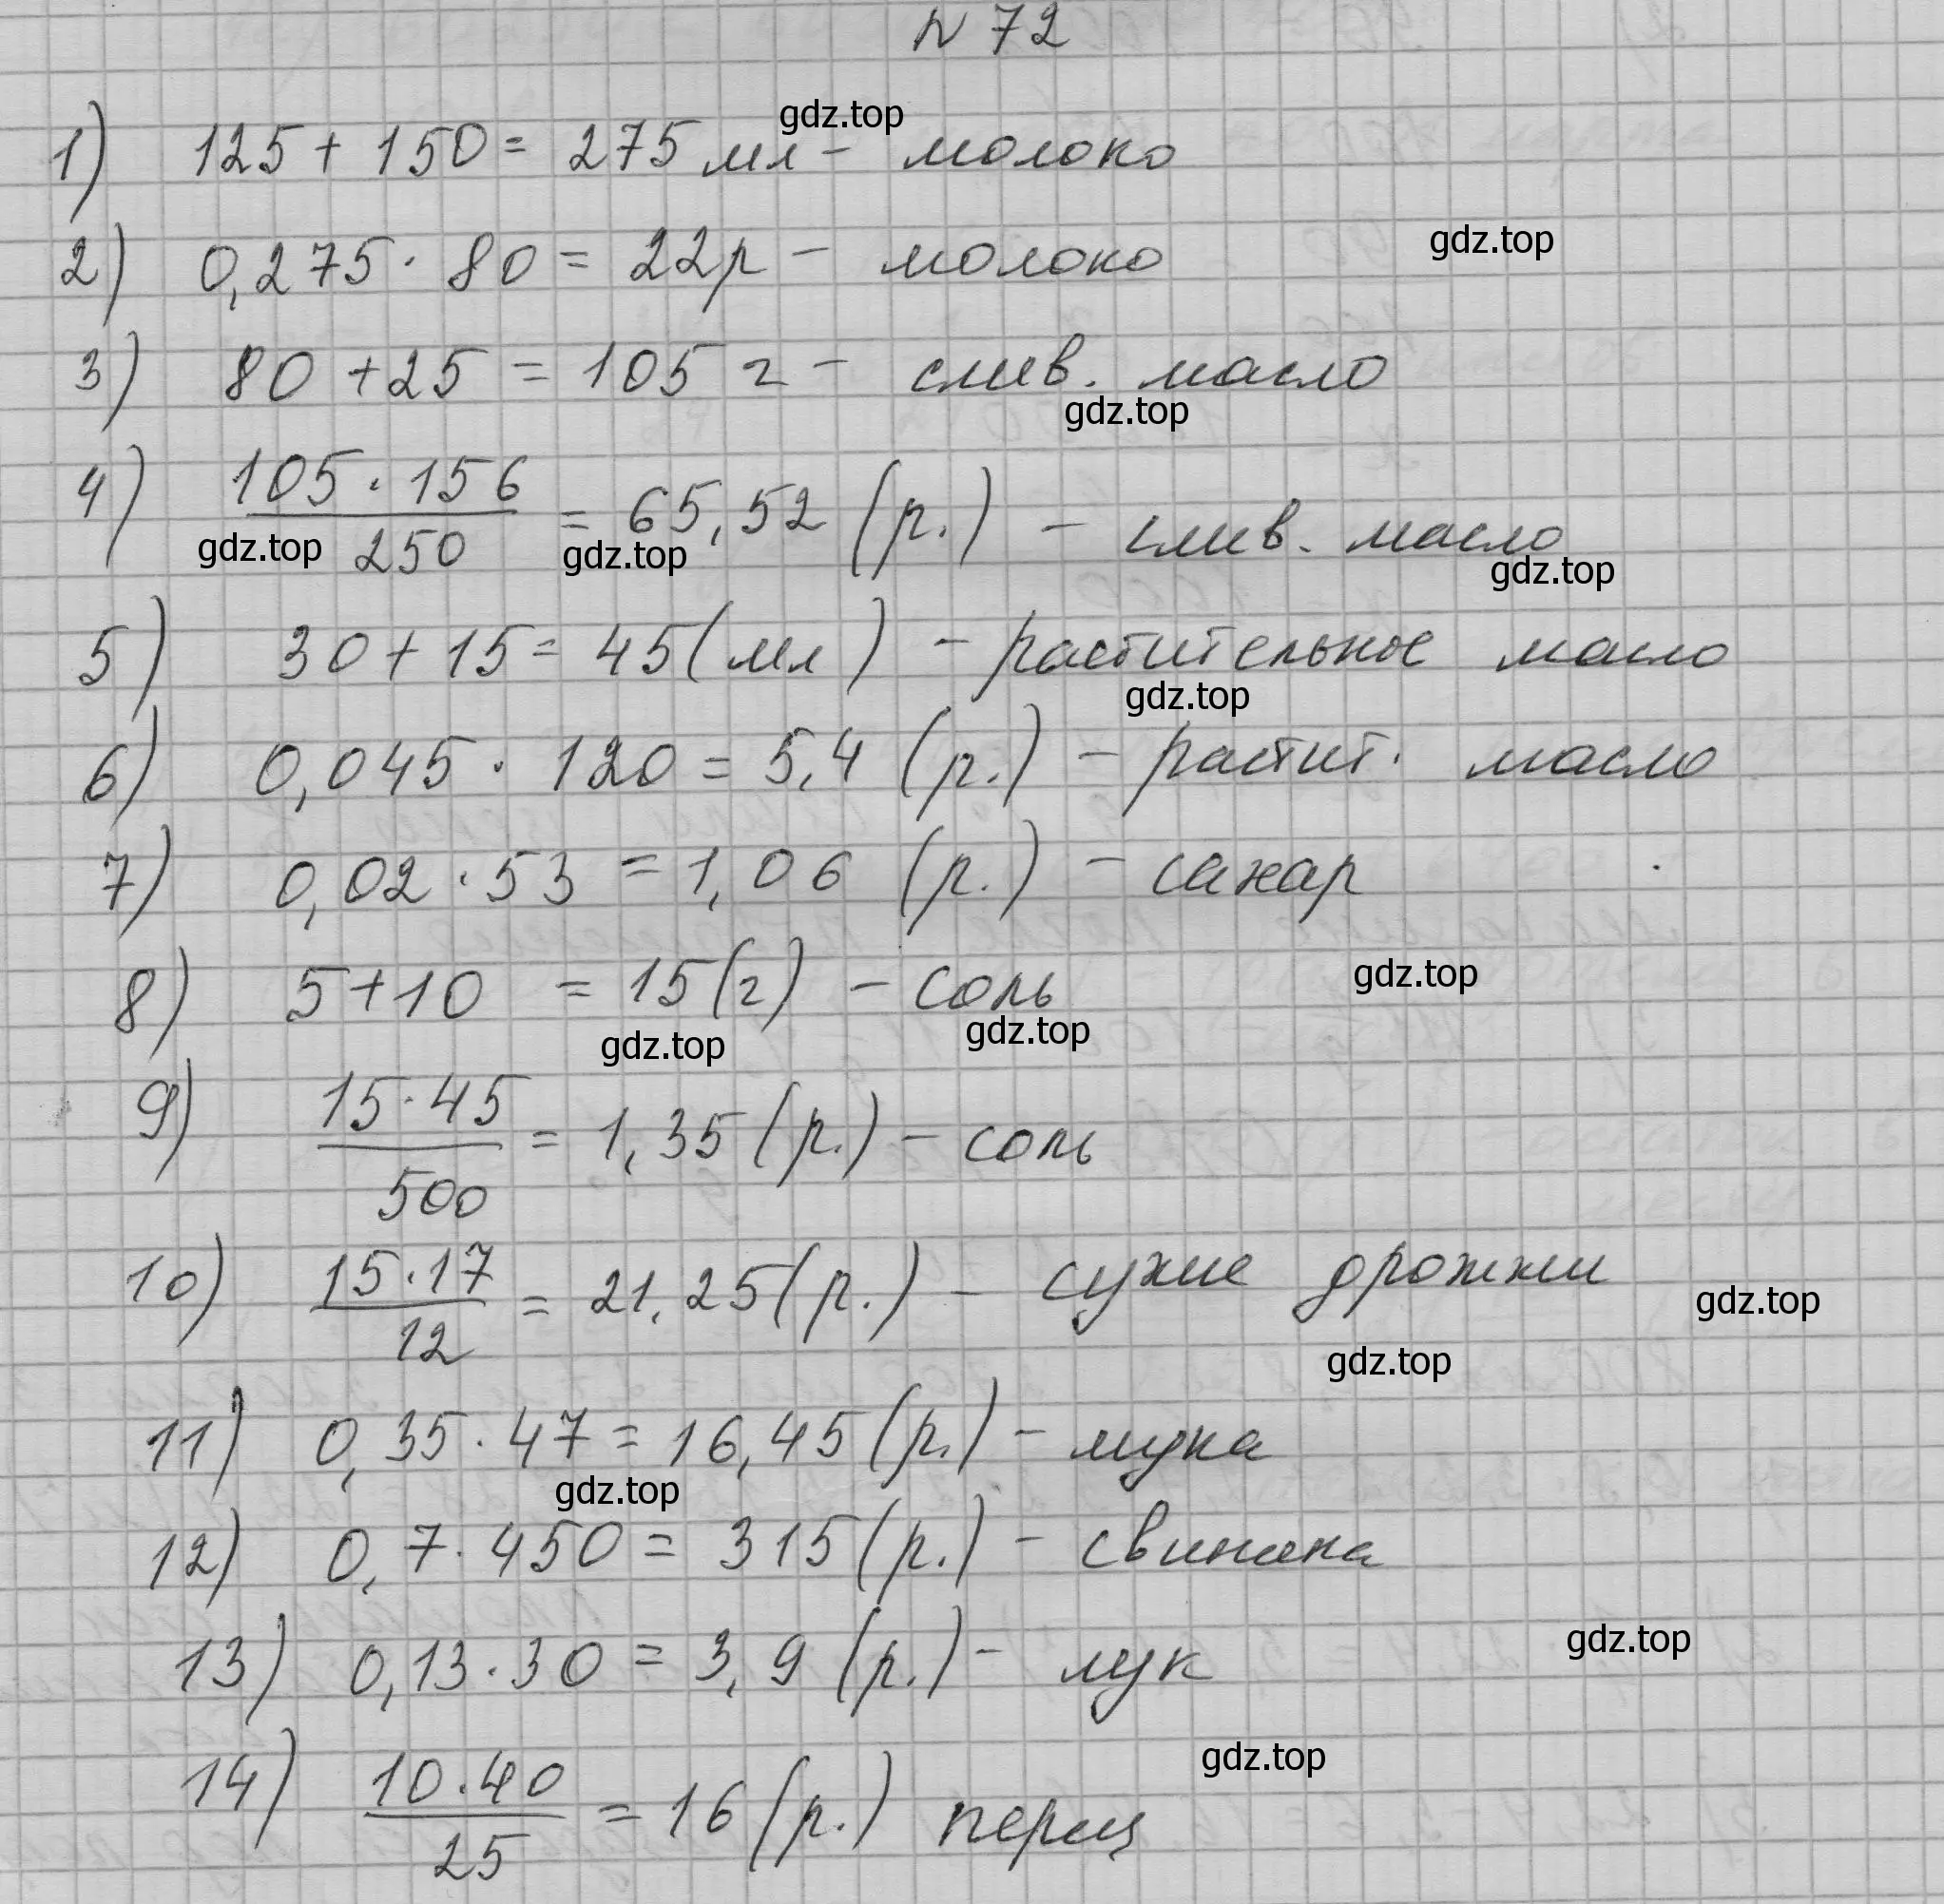 N 72
1) 125 + 150 = 275 мл - молоко
gdz.top
2) 0,275 · 80 = 22р - молоко
gdz.top
3) 80 + 25 = 105 г - слив. масло
gdz.top
4) 105 · 156 / 250 = 65,52 (р.) - слив. масло
gdz.top gdz.top gdz.top
5) 30 + 15 = 45 (мл) - растительное масло
gdz.top
6) 0,045 · 120 = 5,4 (р.) - растит. масло
7) 0,02 · 53 = 1,06 (р.) - сахар
8) 5 + 10 = 15 (г) - соль
gdz.top
gdz.top gdz.top
9) 15 · 45 / 500 = 1,35 (р.) - соль
10) 15 · 17 / 12 = 21,25 (р.) - сухие дрожжи
gdz.top
gdz.top
11) 0,35 · 47 = 16,45 (р.) - мука
gdz.top
12) 0,7 · 450 = 315 (р.) - свинина
13) 0,13 · 30 = 3,9 (р.) - лук
gdz.top
gdz.top
14) 10 · 40 / 25 = 16 (р.) перец